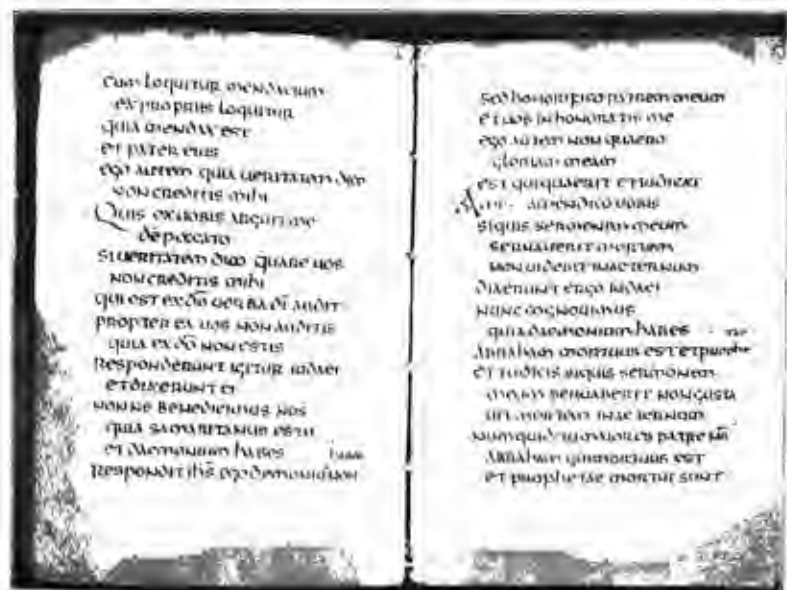 cum loquitur mendacium
ex propriis loquitur
quia mendax est
et pater eius
ego autem quia ueritatem dico
non creditis mihi
Quis ex uobis arguit me
de peccato
si ueritatem dico quare uos
non creditis mihi
qui est ex do uerba di audit
propter ea uos non auditis
quia ex do non estis
Responderunt igitur iudaei
et dixerunt ei
nonne bene dicimus nos
quia samaritanus es tu
et daemonium habes
Respondit ihs ego demonium non
sed honorifico patrem meum
et uos inhonoratis me
ego autem non quaero
gloriam meam
est qui quaerit et iudicat
amen dico uobis
si quis sermonem meum
seruauerit mortem
non uidebit in aeternum
dixerunt ergo iudaei
nunc cognouimus
quia daemonium habes
abraham mortuus est et prophe
et tu dicis si quis sermonem
meum seruauerit non gusta
bit mortem in aeternum
numquid tu maior es patre
abraham qui mortuus est
et prophetae mortui sunt